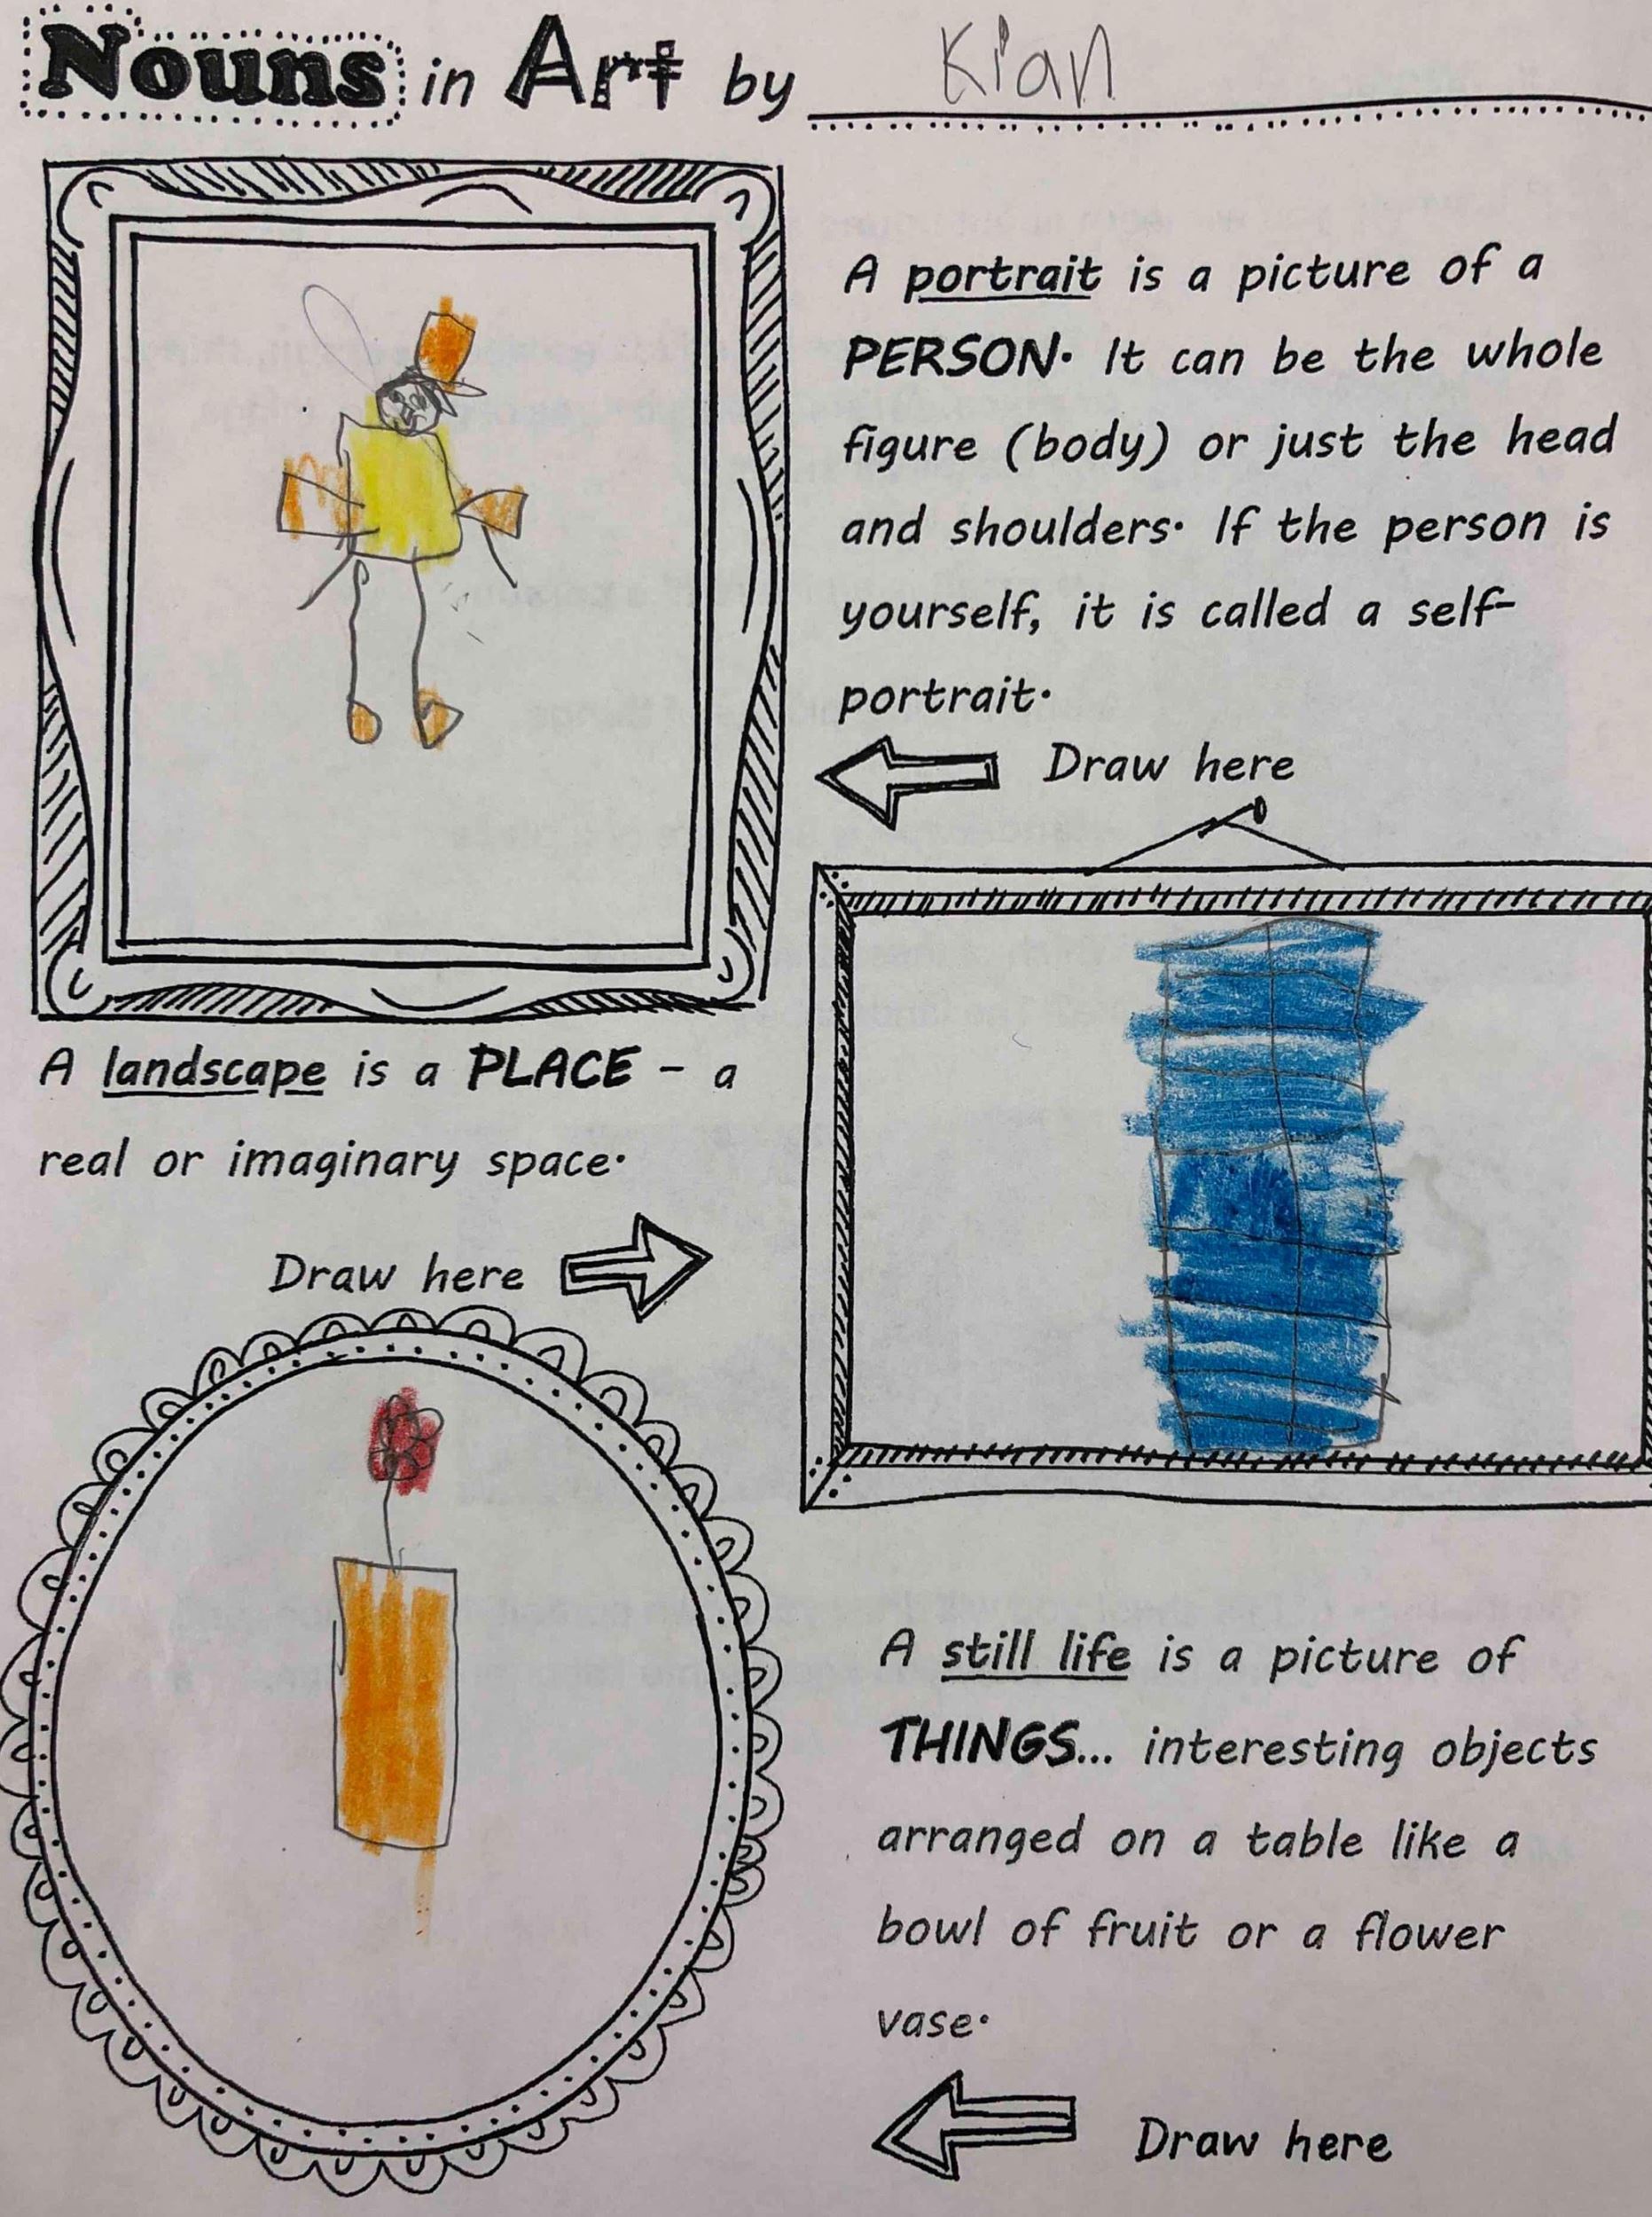 Nouns in Art by Kian
A portrait is a picture of a
PERSON. It can be the whole
figure (body) or just the head
and shoulders. If the person is
yourself, it is called a self-
portrait.
Draw here
A landscape is a PLACE - a
real or imaginary space.
Draw here
A still life is a picture of
THINGS... interesting objects
arranged on a table like a
bowl of fruit or a flower
vase.
Draw here